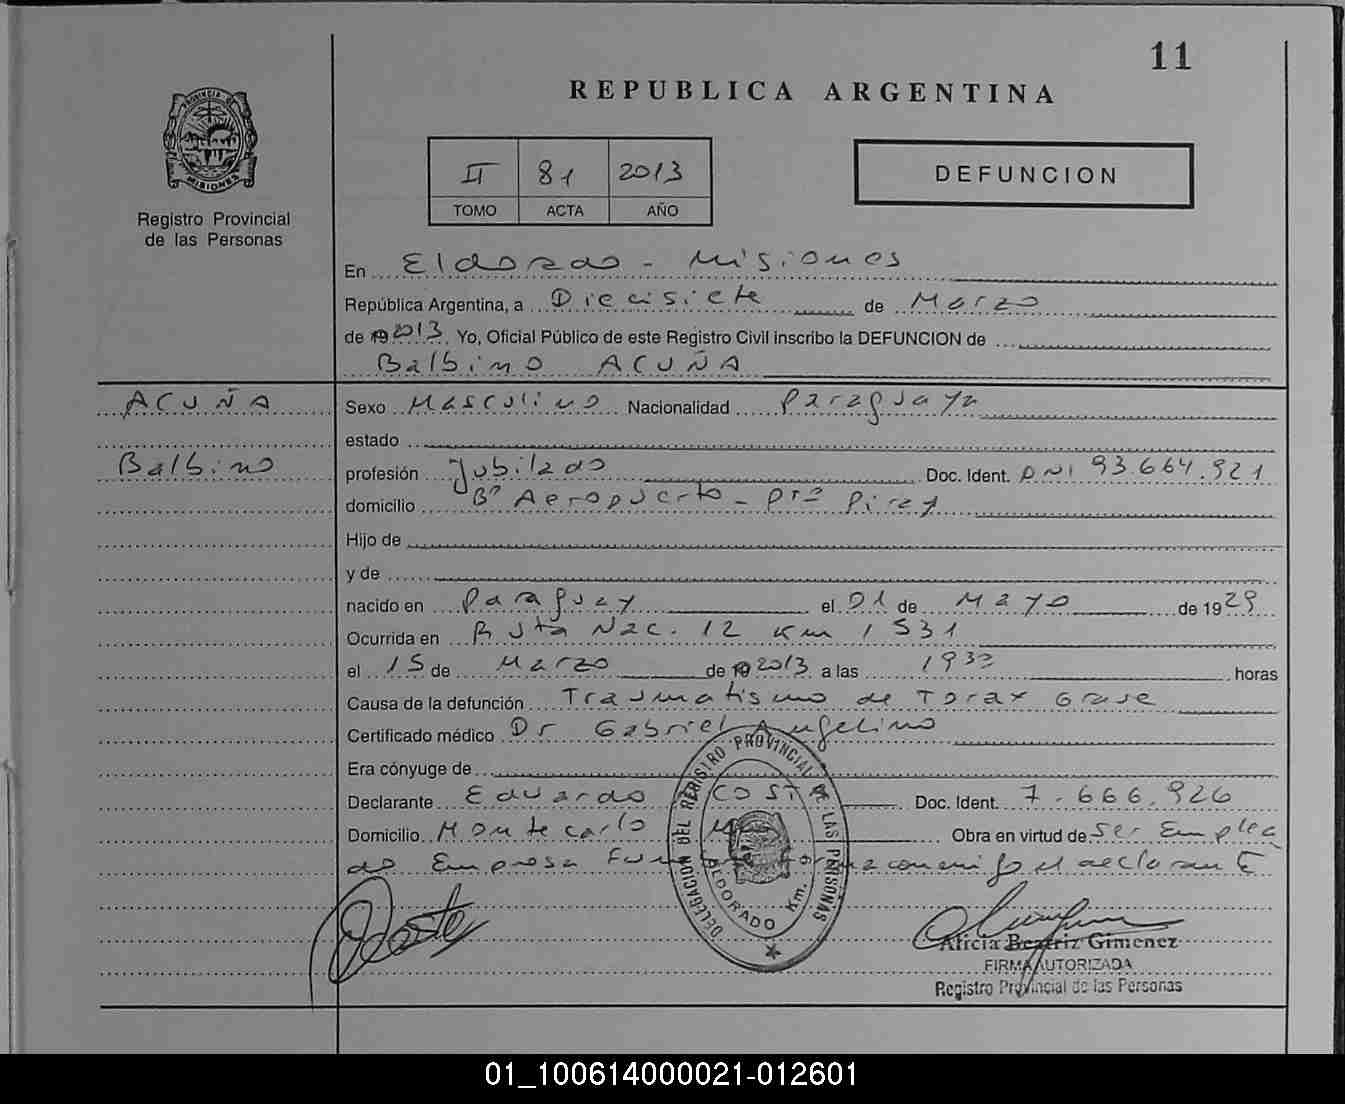 11
REPUBLICA ARGENTINA
PROVINCIA DE
MISIONES
Registro Provincial
de las Personas
II 81 2013
TOMO ACTA AÑO
DEFUNCION
En Eldorado - Misiones
República Argentina, a Diecisiete de Marzo
de 19 2013. Yo, Oficial Público de este Registro Civil inscribo la DEFUNCION de
Balbino ACUÑA
ACUÑA
Balbino
Sexo Masculino Nacionalidad Paraguaya
estado
profesión Jubilado Doc. Ident. DNI 93.664.921
domicilio Bº Aeropuerto - Pto Piray
Hijo de
y de
nacido en Paraguay el 01 de Mayo de 1929
Ocurrida en Ruta Nac. 12 Km 1531
el 15 de Marzo de 19 2013 a las horas
Causa de la defunción Traumatismo de Torax Grave
Certificado médico Dr Gabriel Angelino
Era cónyuge de
Declarante Eduardo COSTE Doc. Ident. 7.666.926
Domicilio Montecarlo Obra en virtud de Ser Emplea
do Empresa el declarante
DELEGACION DEL REGISTRO PROVINCIAL DE LAS PERSONAS
ELDORADO Km. 9
Alicia Beatriz Gimenez
FIRMA AUTORIZADA
Registro Provincial de las Personas
01_100614000021-012601